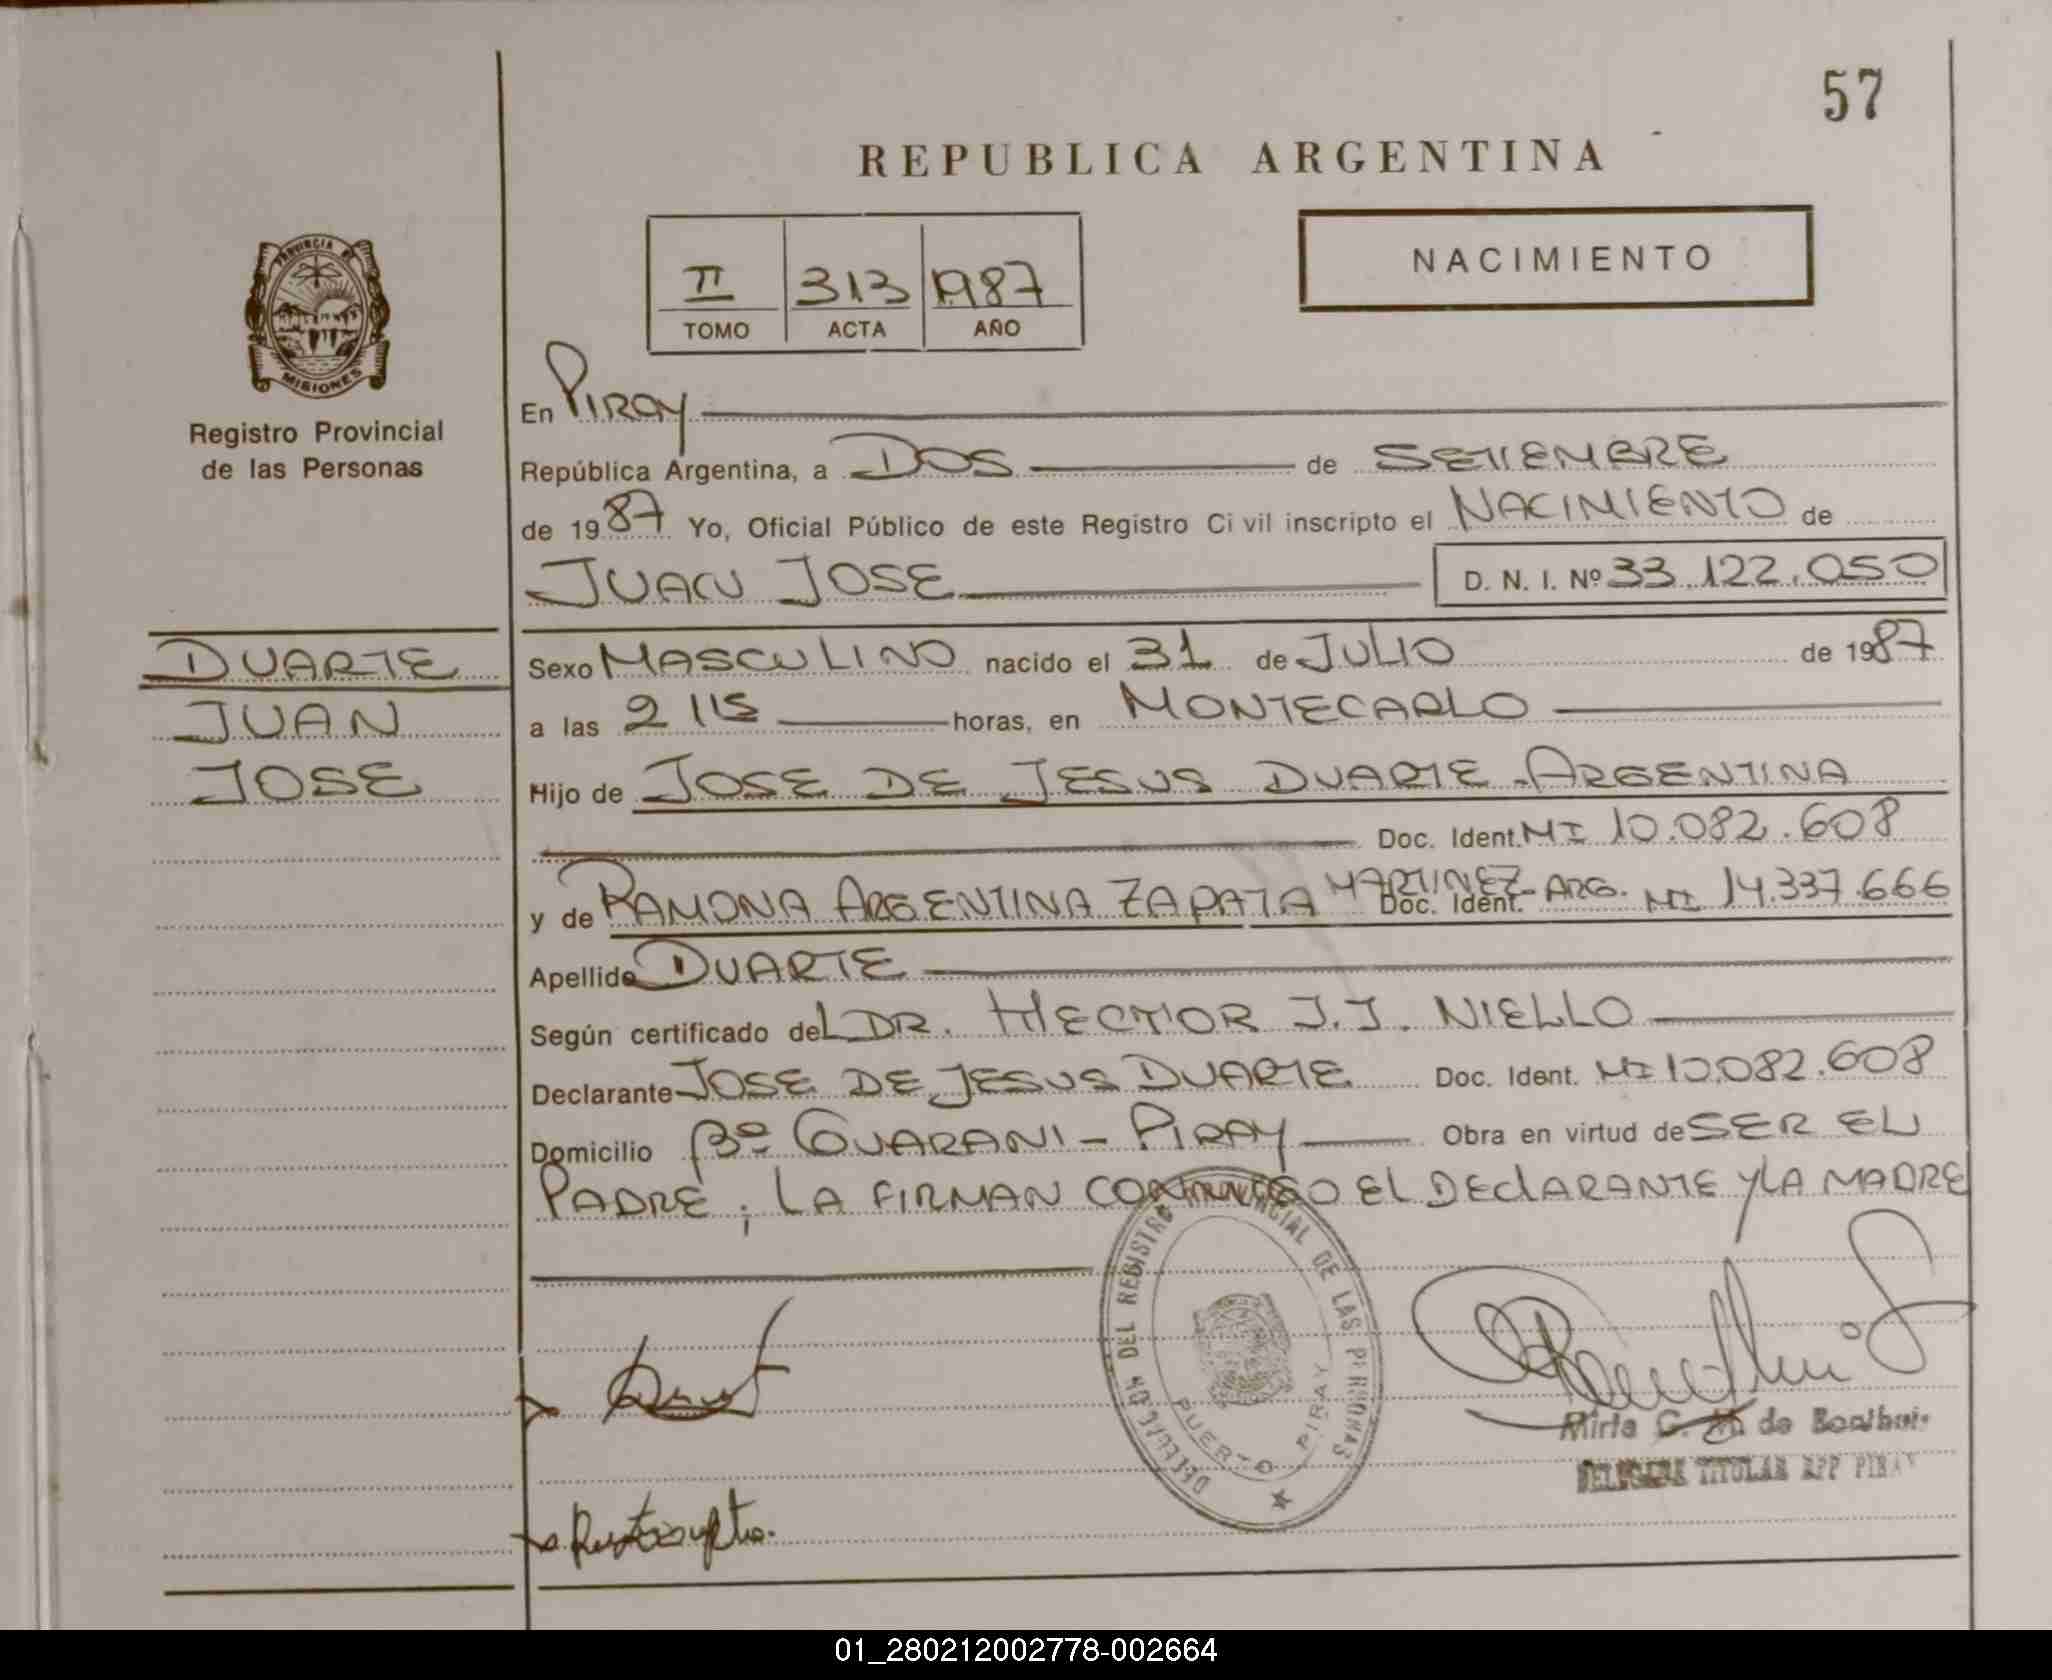 57
REPUBLICA ARGENTINA
NACIMIENTO
II 313 1987
TOMO ACTA AÑO
PROVINCIA DE
MISIONES
Registro Provincial
de las Personas
DUARTE
JUAN
JOSE
En PIRAY
República Argentina, a DOS de SETIEMBRE
de 1987 Yo, Oficial Público de este Registro Civil inscripto el NACIMIENTO de
JUAN JOSE D. N. I. Nº 33.122.050
Sexo MASCULINO nacido el 31 de JULIO de 1987
a las 2 horas, en MONTECARLO
Hijo de JOSE DE JESUS DUARTE - ARGENTINA
Doc. Ident. MI 10.082.608
y de RAMONA ARGENTINA ZAPATA MARTINEZ - ARG. Doc. Ident. MI 14.337.666
Apellido DUARTE
Según certificado del DR. HECTOR J.J. NIELLO
Declarante JOSE DE JESUS DUARTE Doc. Ident. MI 10.082.608
Domicilio Bº GUARANI - PIRAY Obra en virtud de SER EL
PADRE; LA FIRMAN CONMIGO EL DECLARANTE Y LA MADRE
DELEGACION DEL REGISTRO PROVINCIAL DE LAS PERSONAS
PUERTO PIRAY
Mirta G. M. de
DELEGADA TITULAR RPP PIRAY
01_280212002778-002664